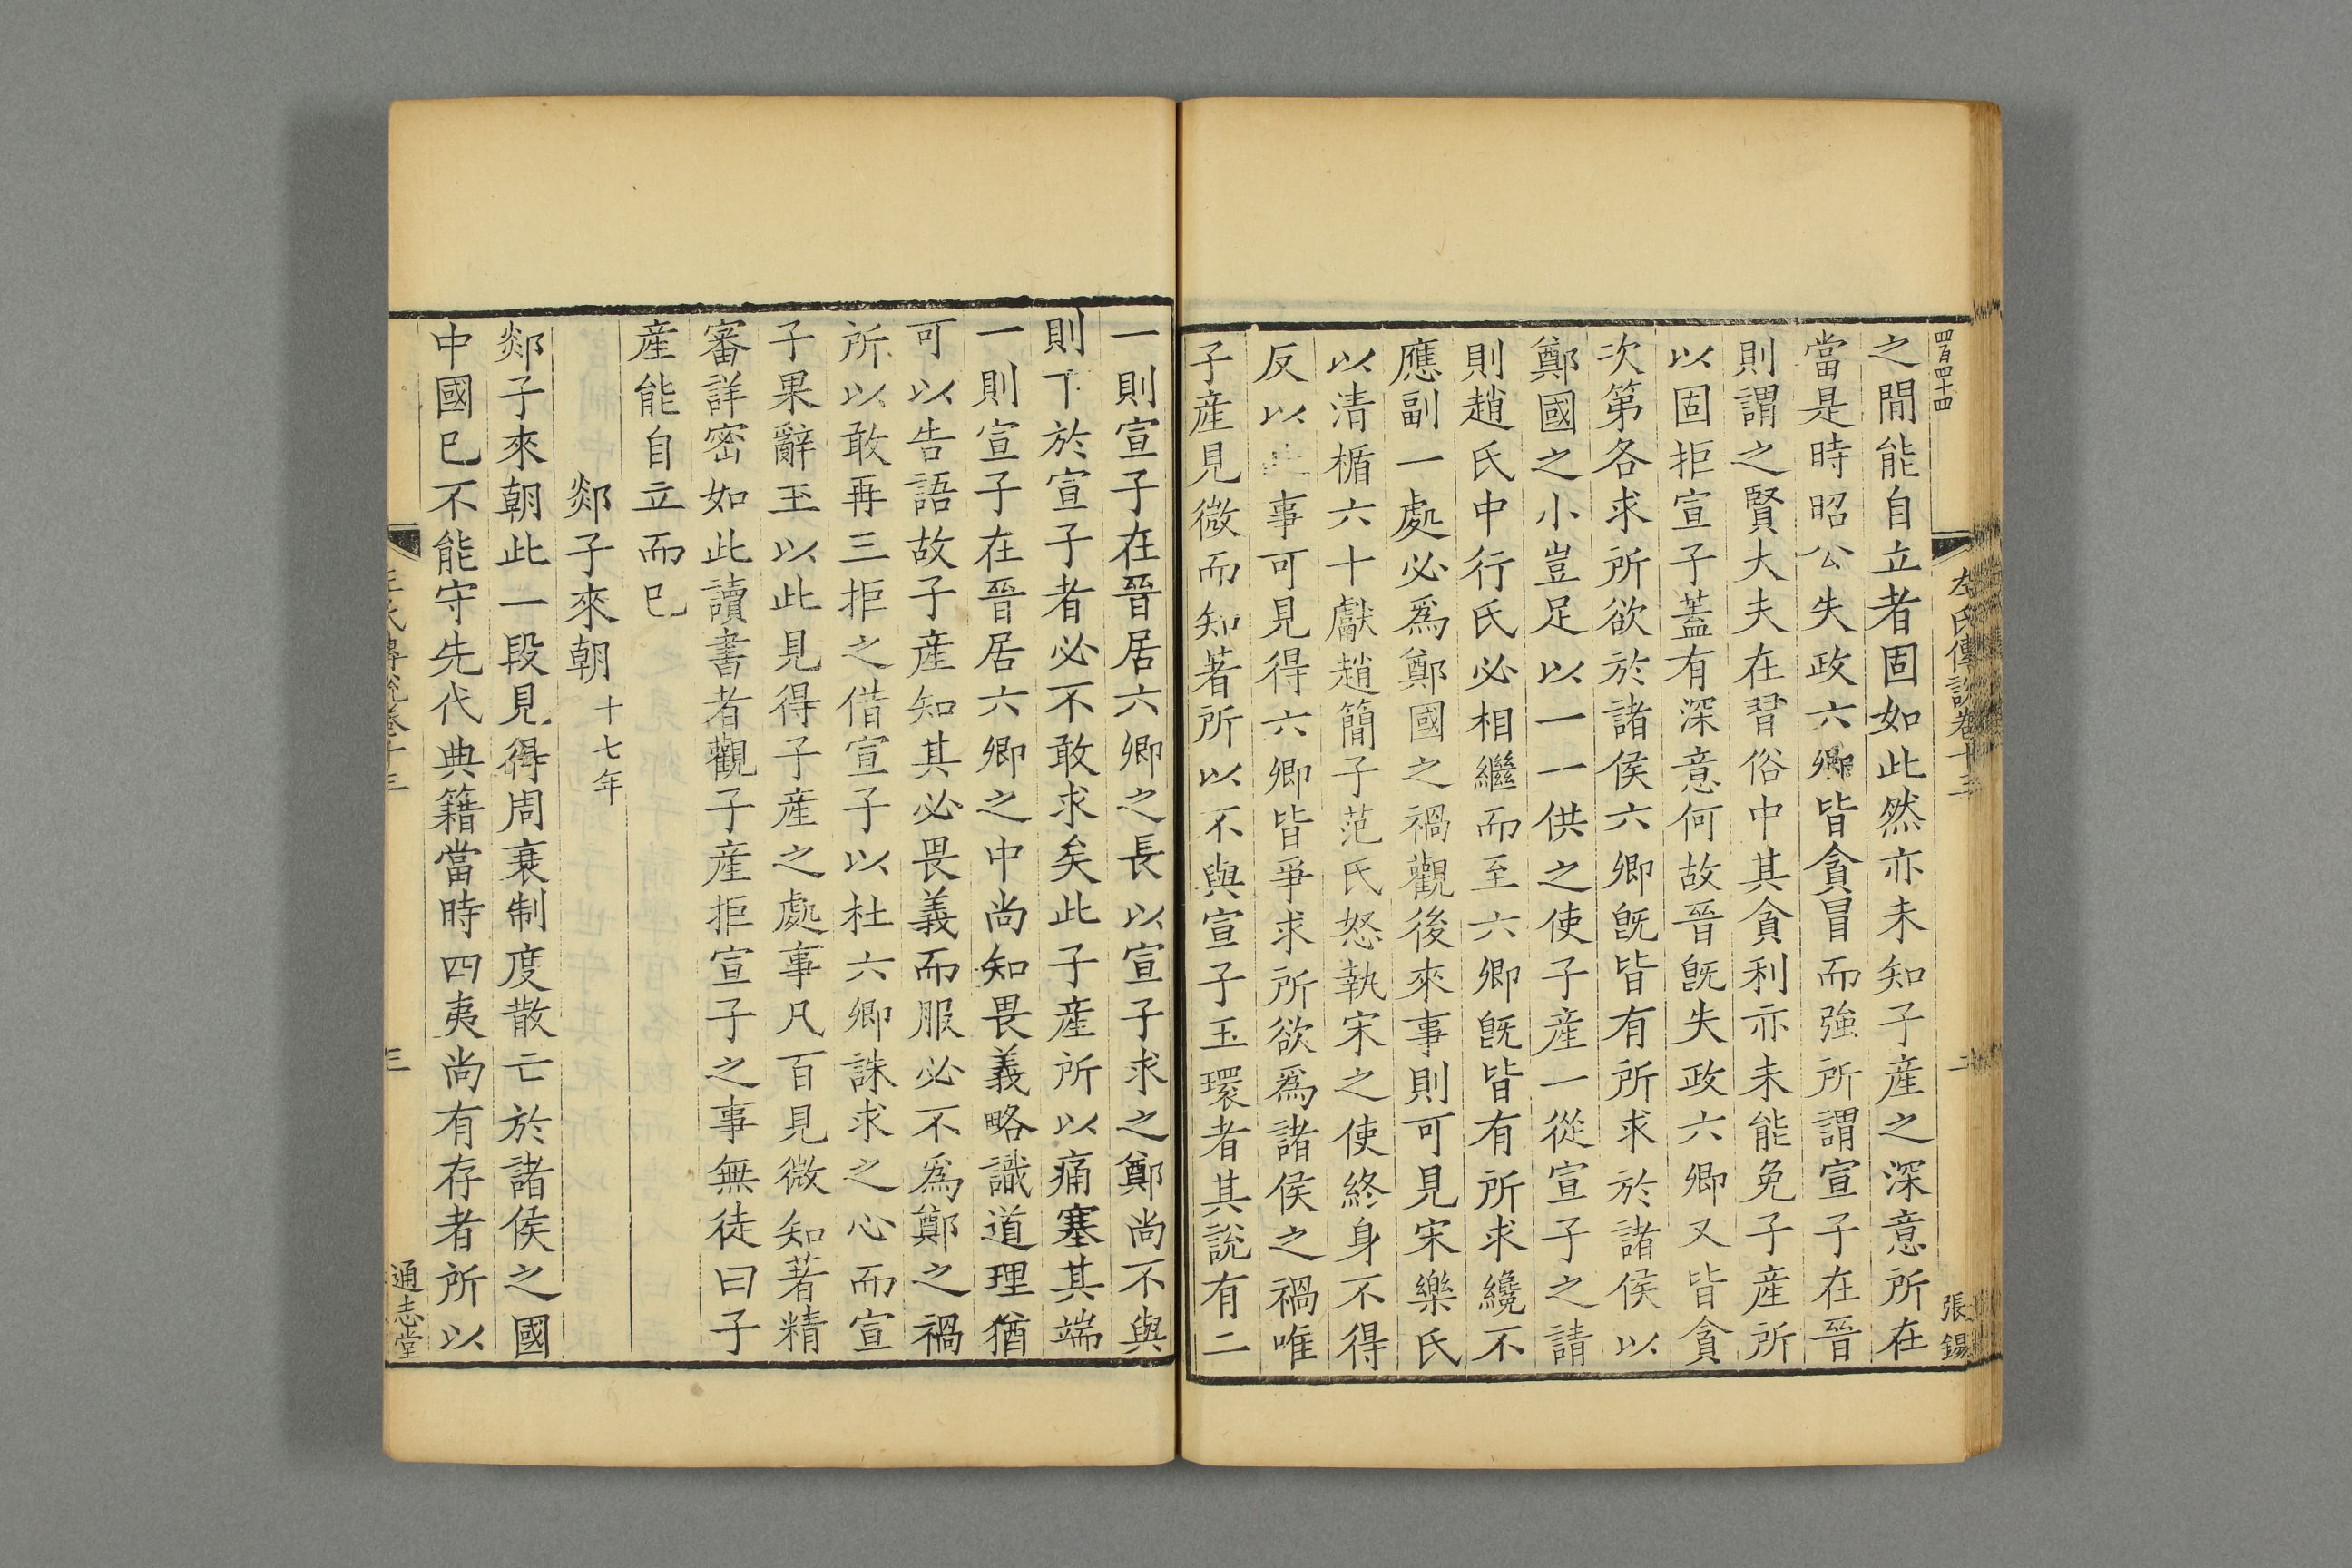 四百四十四
左氏傳説卷十三
二
張錫
之閒能自立者固如此然亦未知子産之深意所在
當是時昭公失政六卿皆貪冒而強所謂宣子在晉
則謂之賢大夫在習俗中其貪利亦未能免子產所
以固拒宣子蓋有深意何故晉旣失政六卿又皆貪
次第各求所欲於諸侯六卿旣皆有所求於諸侯以
鄭國之小豈足以一一供之使子産一從宣子之請
則趙氏中行氏必相繼而至六卿旣皆有所求纔不
應副一處必爲鄭國之禍觀後來事則可見宋樂氏
以清楯六十獻趙簡子范氏怒執宋之使終身不得
反以事可見得六卿皆爭求所欲爲諸侯之禍唯
子産見微而知著所以不與宣子玉環者其説有二
一則宣子在晉居六卿之長以宣子求之鄭尚不與
則下於宣子者必不敢求矣此子産所以痛塞其端
一則宣子在晉居六卿之中尚知畏義略識道理猶
可以告語故子産知其必畏義而服必不爲鄭之禍
所以敢再三拒之借宣子以杜六卿誅求之心而宣
子果辭玉以此見得子産之處事凡百見微知著精
審詳密如此讀書者觀子産拒宣子之事無徒曰子
産能自立而已
郯子來朝 十七年
郯子來朝此一段見得周衰制度散亡於諸侯之國
中國已不能守先代典籍當時四夷尚有存者所以
左氏傳説卷十三
三
通志堂